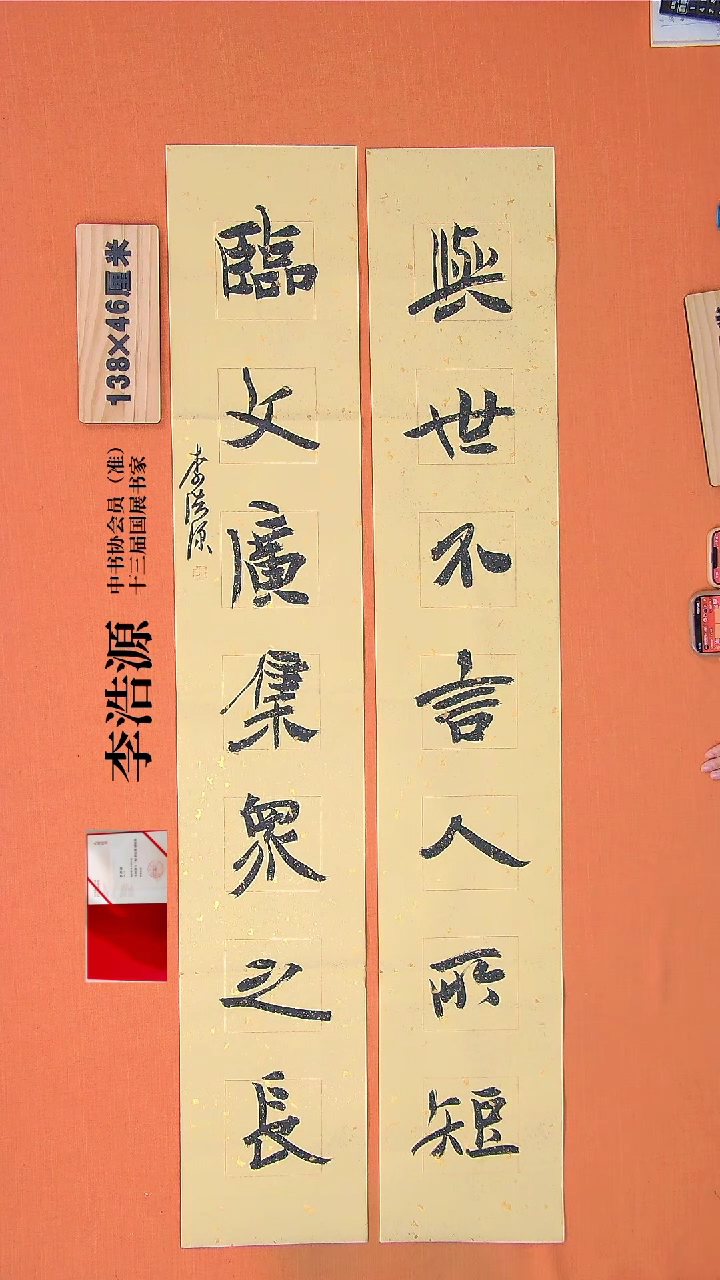 與世不言人所短
臨文廣集眾之長
李浩源
138×46厘米
李浩源
中书协会员（准）
十三届国展书家